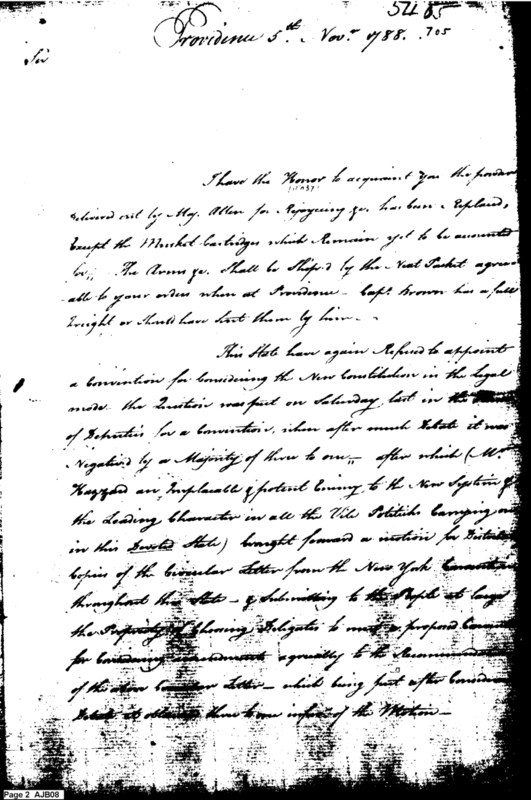 5465
Providence 5th Novr 1788. 705
Sir
I have the Honor to acquaint you the powder
delivered out by Maj. Allen for Rejoyceing &c. has been Replaced,
Except the Musket Cartridges which Remain yet to be accounted
for,, The Arms &c. Shall be Ship'd by the Next Packet agree-
able to your orders when at Providence - Capt. Brown has a full
Freight or Should have sent them by him -
This State have again Refused to appoint
a Convention for Considering the New Constitution in the legal
mode. the Question was put on Saturday last in the
of Deputies for a Convention, when after much Debate it was
Negativ'd by a Majority of three to one,, after which (Mr
Hazzard an Implacable & potent Enemy to the New System &
the Leading Character in all the Vile Politicks Carrying on
in this Devoted State) brought forward a motion for
Copies of the Circular Letter from the New York Convention
throughout this State - & Submitting to the People at large
the Propriety of Choosing Delegates to meet a propos'd
for Considering amendments agreeably to the
of the above Circular Letter - which being put after
Debate it obtained three to one in favr of the Motion -
Page 2 AJB08